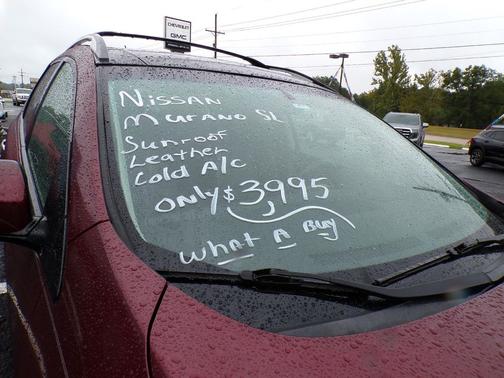 CHEVROLET
GMC
Nissan
Murano SL
Sunroof
Leather
Cold A/C
Only $3,995
What A Buy